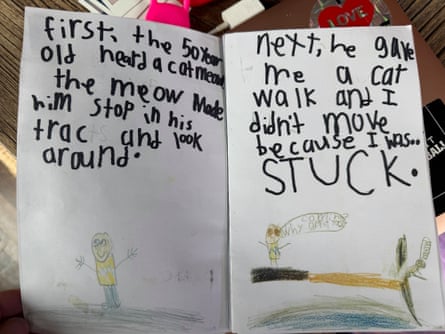 first, the 50 Year
old heard a cat meow
the meow made
him stop in his
trac and look
around.
next, he gave
me a cat
walk and I
didn't move
because I was..
STUCK.
WHY
LOVE